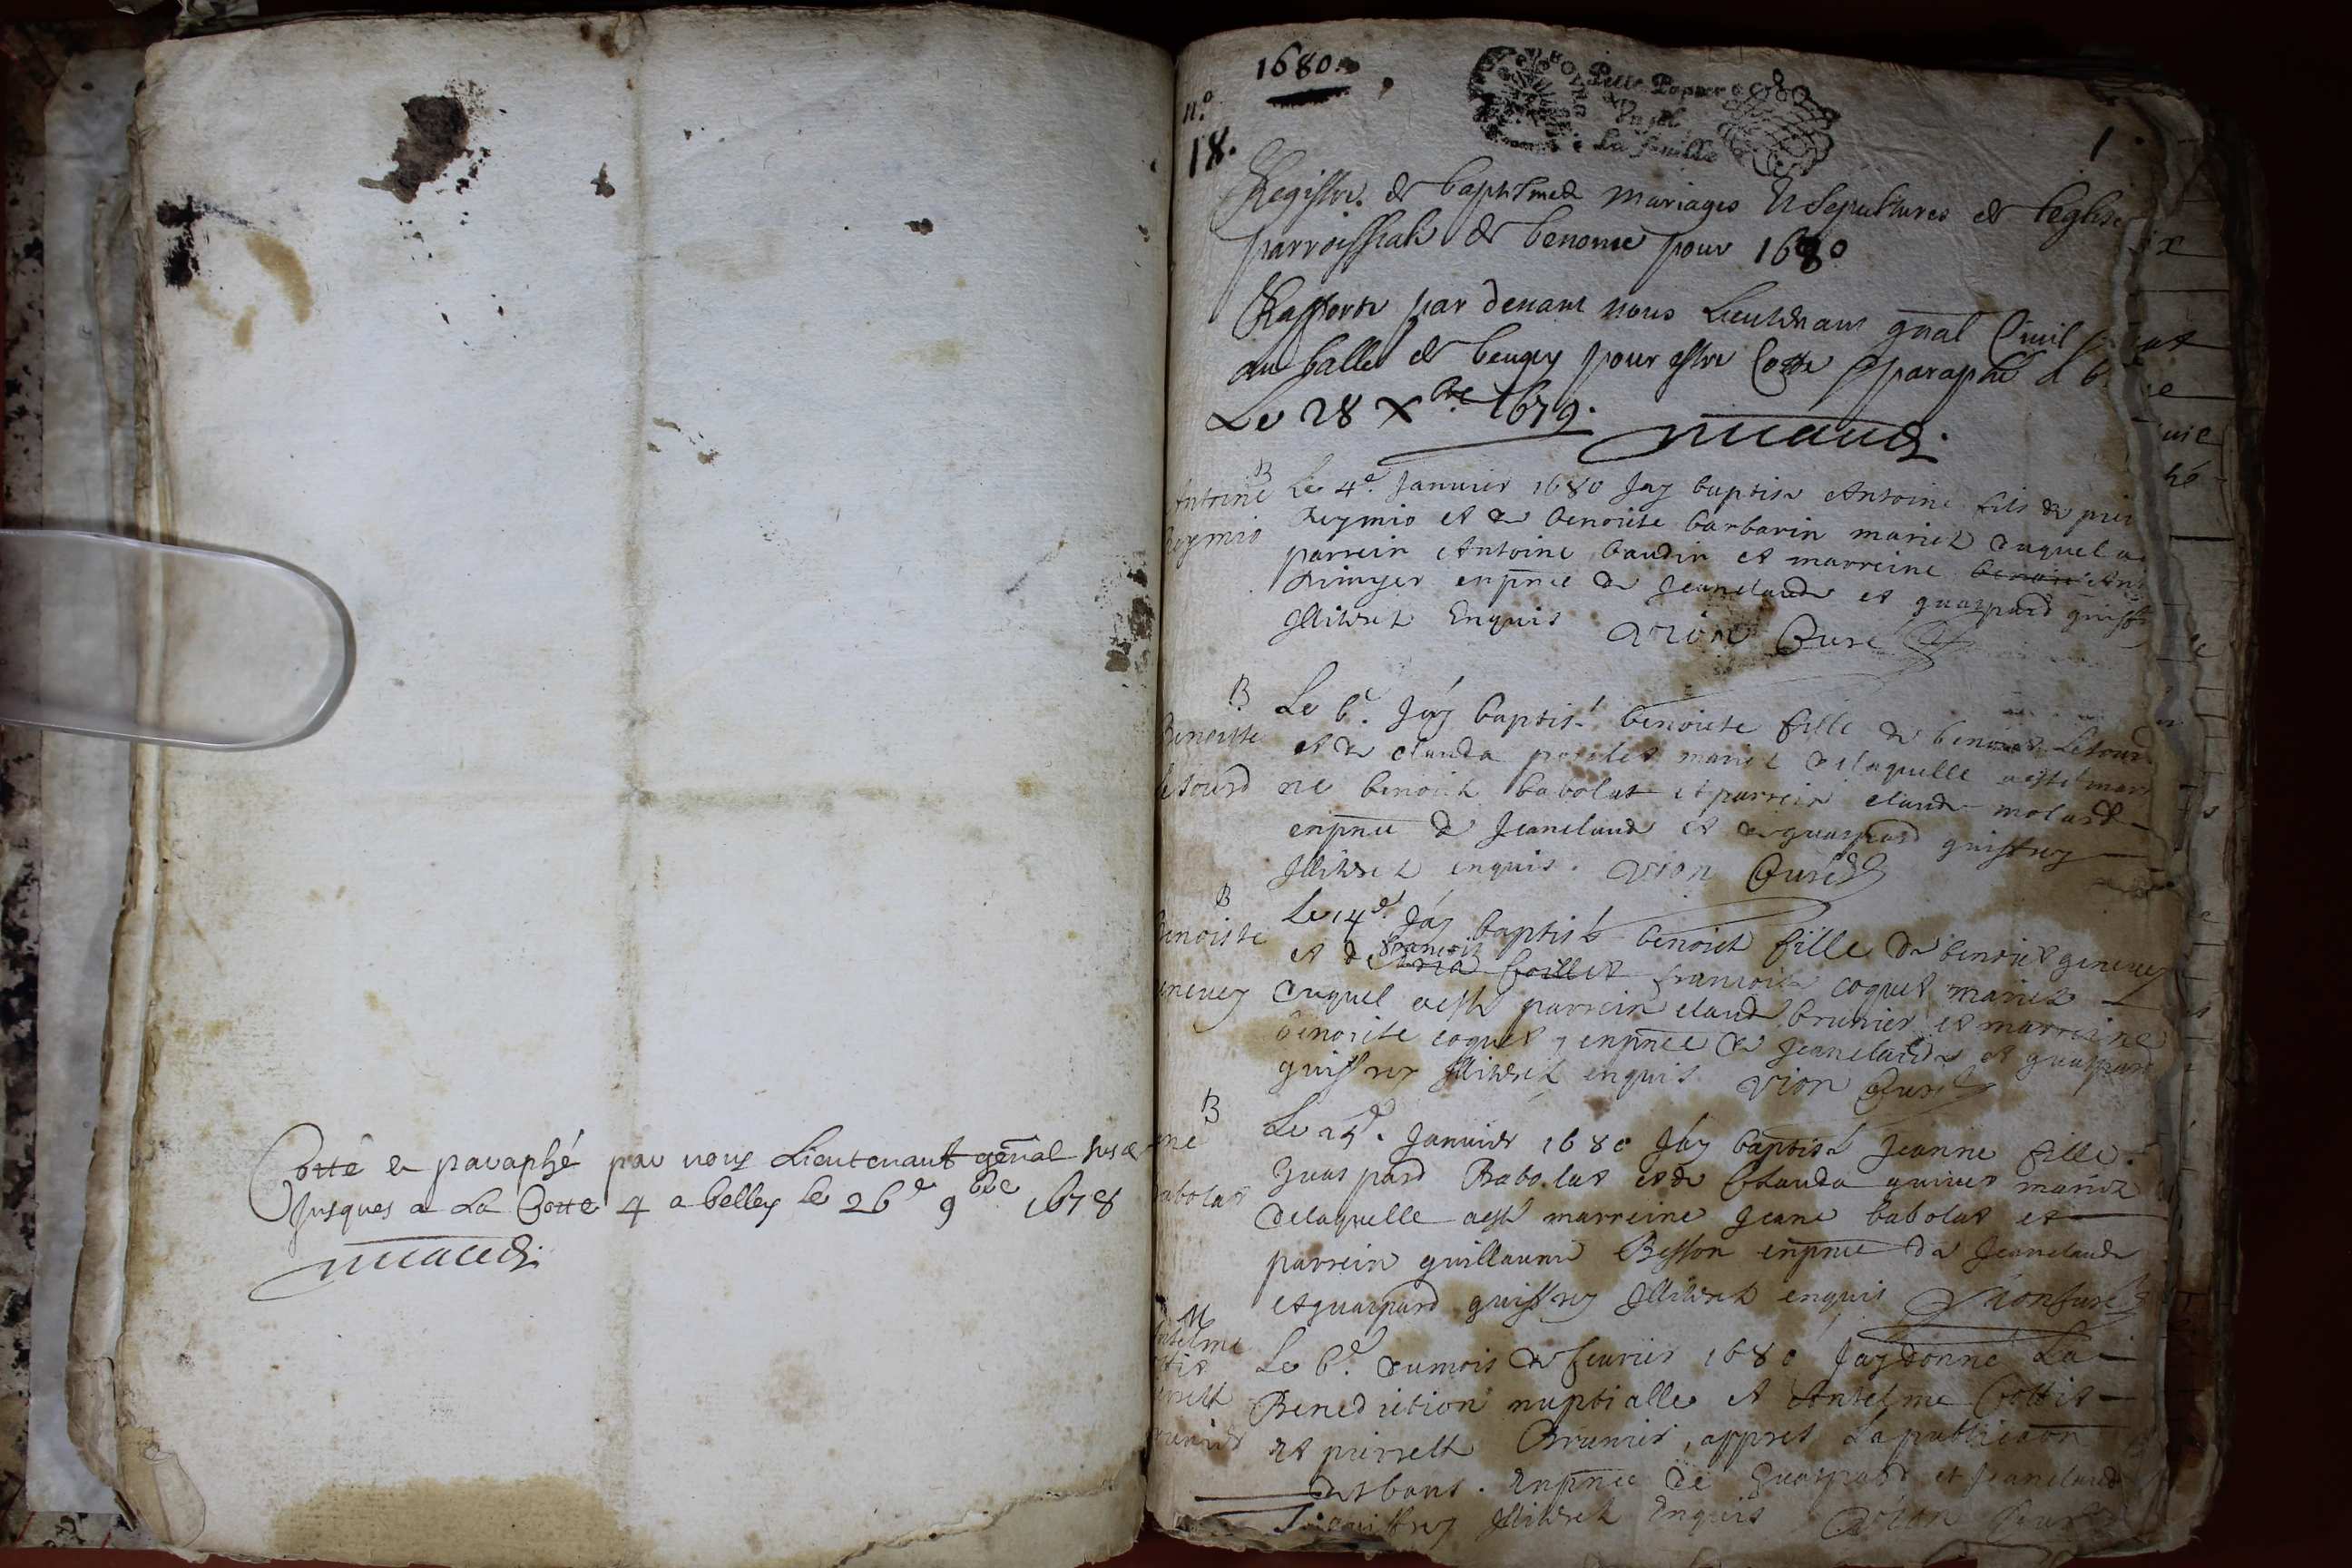 Cotté & paraphé par nous Lieutenant genal
Jusques a La Cotte 4 a belley le 26e 9bre 1678
1680.
n.o
18.
1
Petit Papier
La feuille
Registre de baptismes mariages Et Sepultures de leglise
parroissiale de benonce pour 1680
par devant nous Lieutenant gnal Civil
au balle de beugey pour estre Cotte & paraphé a
Le 28 Xbre 1679.
B
Antoine
Reymio
Le 4e. Janvier 1680 Jay baptise Antoine fils de
Reymio et de benoiste barbarin mariez duquel a
parrein Antoine baudin et marreine
enpnce de Jeanclaude et guaspard
Illitrez Enquis Vion Cure
B
Benoiste
letourd
Le 6e. Jay baptisé benoiste fille de benoist Letourd
et de clauda mariez delaquelle a esté marr
ne benoiste babolat et parrein claude molard
enpnce de Jeanclaude et de guaspard guiffrey
Illitrez enquis. Vion Curé
B
Benoiste
enevey
Le 14e. Jay baptisé benoiste fille de benoist genevey
et de francoise coquet mariez
duquel a esté parrein claude brunier et marreine
benoiste coquet, enpnce de Jeanclaude et guaspard
guiffrey Illitrez enquis Vion Curé
B
ne
abolat
Le Janvier 1680 Jay baptisé Jeanne fille
Guaspard Babolat et de Clauda mariez
delaquelle a esté marreine Jeane babolat et
parrein guillaume Besson enpnce de Jeanclaude
et guaspard guiffrey Illitrez enquis Vion Curé
M
Anselme
Le 6e. du mois de fevrier 1680 Jay donné La
Benediction nuptialle a Antelme Cottit
et pierrette Brunier, appres La publicaon
des bans. Enpnce de Guaspard et Jeanclaude
guiffrey Illitrez Enquis Vion Cure